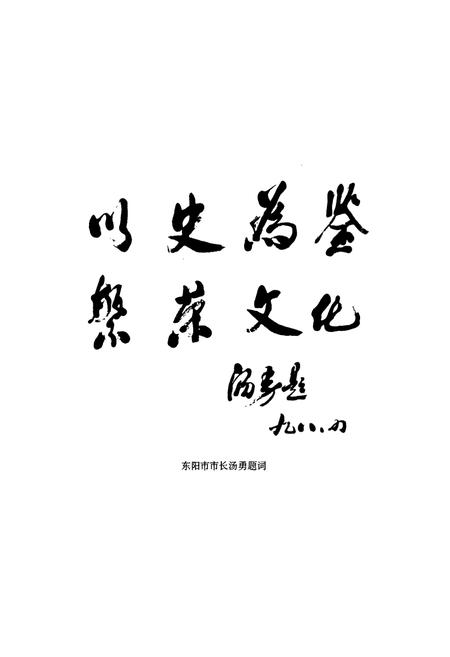 以史為鉴
繁荣文化
汤勇题
九八.
东阳市市长汤勇题词